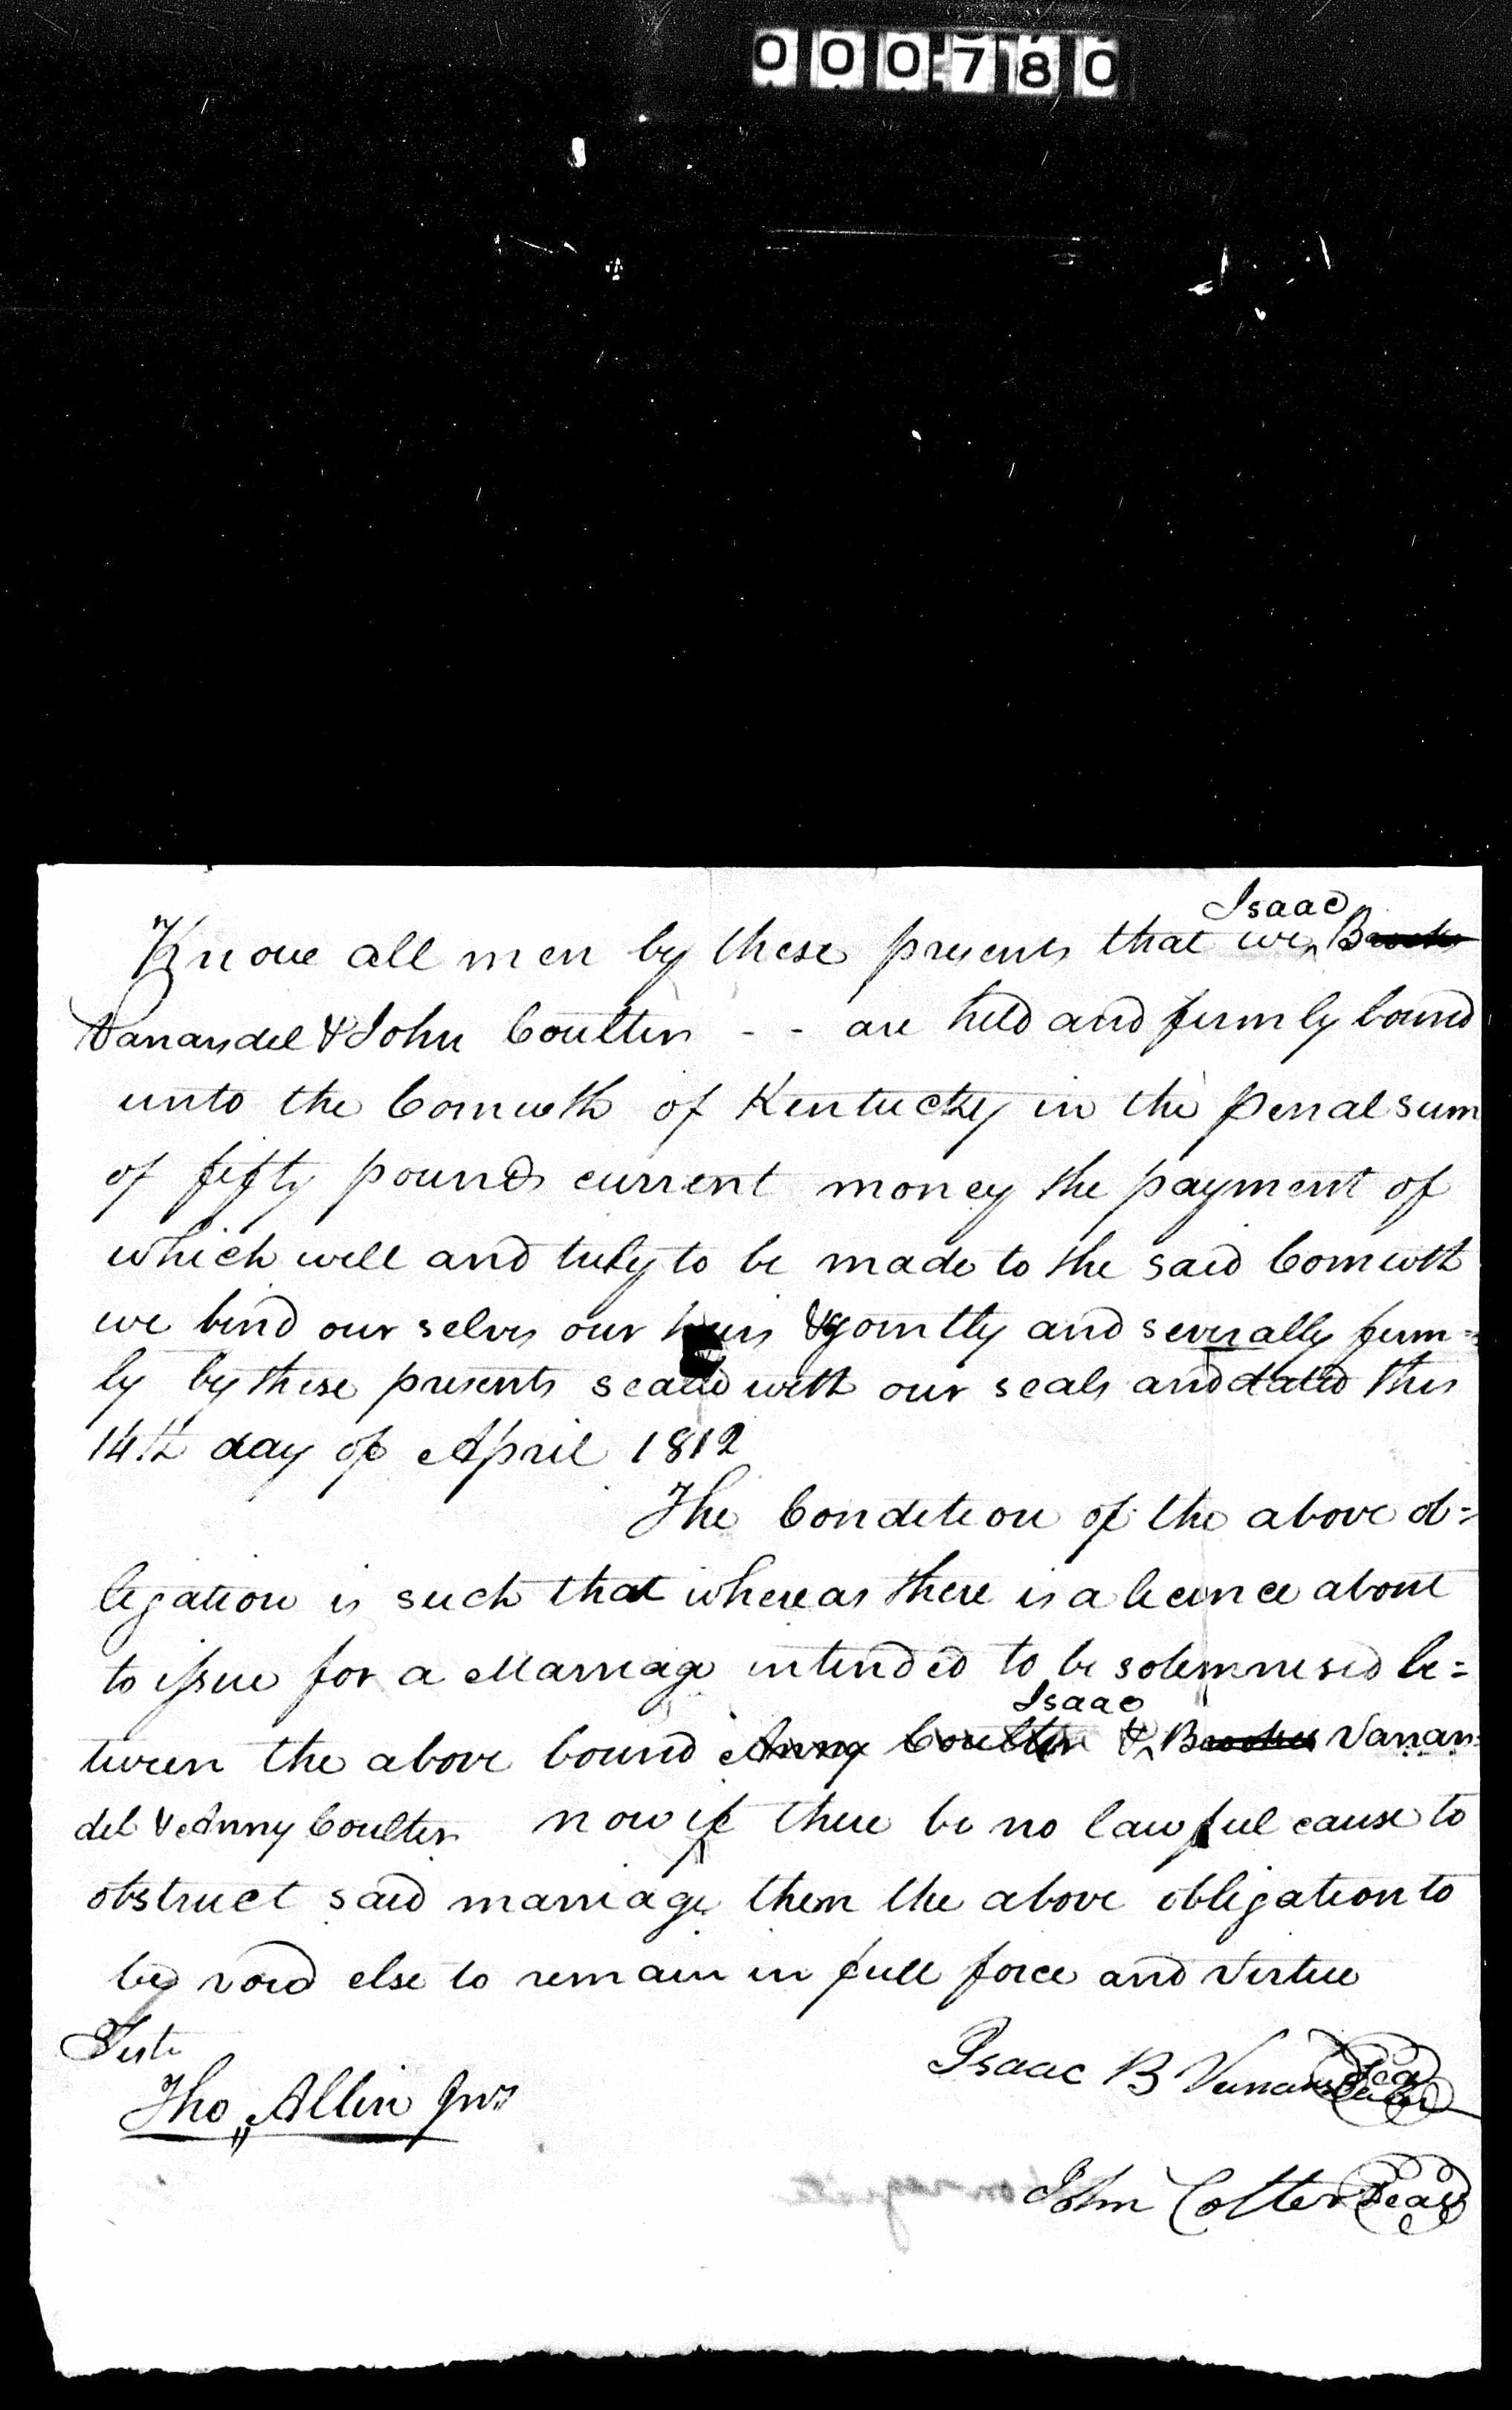 000780
Know all men by these presents that we Isaac B
Vanansdel & John Coulter - - are held and firmly bound
unto the Comwth of Kentucky in the penal sum
of fifty pounds current money the payment of
which well and truly to be made to the said Comwth
we bind our selves our heirs & jointly and severally firm=
ly by these presents seald with our seals and dated this
14th day of April 1812
The Condition of the above ob=
ligation is such that whereas there is a licence about
to issue for a Marriage intended to be solemnised be=
tween the above bound Anny Coulter & Isaac B Vanan=
del & Anny Coulter now if there be no lawful cause to
obstruct said marriage then the above obligation to
be void else to remain in full force and virtue
Teste
Tho Allin Jnr
Isaac B Seal
John Colter Seal